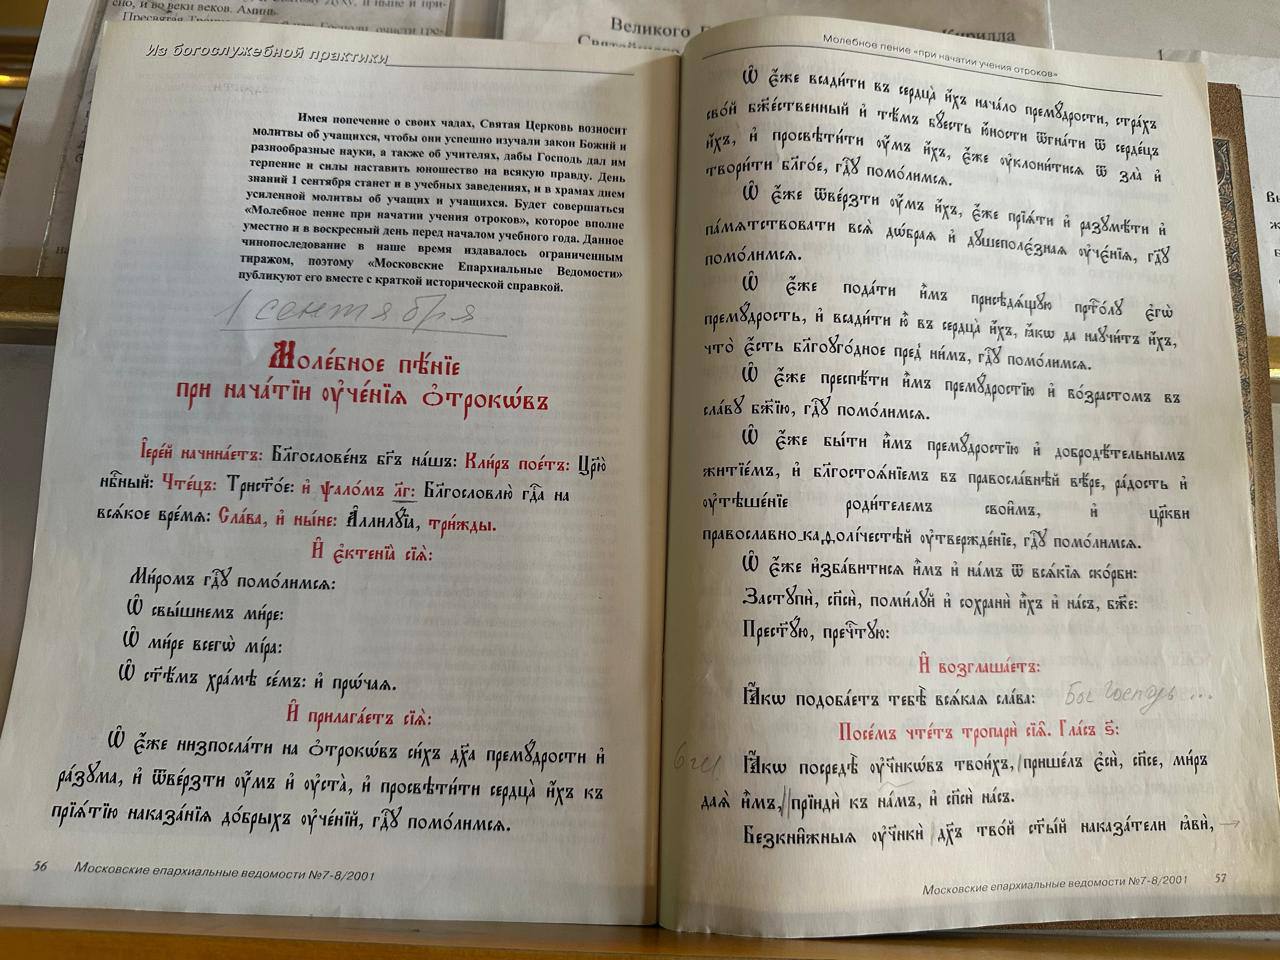 сно, и во веки веков. Аминь.
Великого
Кирилла
Из богослужебной практики
Имея попечение о своих чадах, Святая Церковь возносит
молитвы об учащихся, чтобы они успешно изучали закон Божий и
разнообразные науки, а также об учителях, дабы Господь дал им
терпение и силы наставить юношество на всякую правду. День
знаний 1 сентября станет и в учебных заведениях, и в храмах днем
усиленной молитвы об учащих и учащихся. Будет совершаться
«Молебное пение при начатии учения отроков», которое вполне
уместно и в воскресный день перед началом учебного года. Данное
чинопоследование в наше время издавалось ограниченным
тиражом, поэтому «Московские Епархиальные Ведомости»
публикуют его вместе с краткой исторической справкой.
1 сентября
Моле́бное пѣ́нїе
при нача́тїи ѹ҆че́нїѧ ѻ҆́трокѡвъ
І҆ере́й начина́етъ: Бл҃гослове́нъ бг҃ъ на́шъ: Кли́ръ пое́тъ: Цр҃ю̀
нб҃ный: Чте́цъ: Трист҃о́е: и҆ ѱало́мъ л҃г: Бл҃гословлю̀ гдⷭ҇а на
всѧ́кое вре́мѧ: Сла́ва, и҆ ны́не: А҆ллилꙋ́їа, три́жды.
И҆ є҆ктенїа̀ сїѧ̀:
Ми́ромъ гдⷭ҇ꙋ помо́лимсѧ:
Ѡ҆ свы́шнемъ ми́ре:
Ѡ҆ ми́ре всегѡ̀ мі́ра:
Ѡ҆ ст҃ѣ́мъ хра́мѣ се́мъ: и҆ прѡ́чаѧ.
И҆ прилага́етъ сїѧ̀:
Ѡ҆ є҆́же низпосла́ти на ѻ҆́трокѡвъ си́хъ дх҃а премꙋ́дрости и҆
ра́зꙋма, и҆ ѿве́рзти ѹ҆́мъ и҆ ѹ҆ста̀, и҆ просвѣти́ти сердца̀ и҆́хъ къ
прїѧ́тїю наказа́нїѧ до́брыхъ ѹ҆че́нїй, гдⷭ҇ꙋ помо́лимсѧ.
56 Московские епархиальные ведомости №7-8/2001
Молебное пение «при начатии учения отроков»
Ѡ҆ є҆́же всади́ти въ сердца̀ и҆́хъ нача́ло премꙋ́дрости, стра́хъ
сво́й бж҃е́ственный и҆ тѣ́мъ бꙋ́есть ю҆́ности ѿгна́ти ѿ серде́цъ
и҆́хъ, и҆ просвѣти́ти ѹ҆́мъ и҆́хъ, є҆́же ѹ҆клони́тисѧ ѿ зла̀ и҆
твори́ти бл҃го́е, гдⷭ҇ꙋ помо́лимсѧ.
Ѡ҆ є҆́же ѿве́рзти ѹ҆́мъ и҆́хъ, є҆́же прїѧ́ти и҆ разꙋмѣ́ти и҆
па́мѧтствовати всѧ̀ дѡ́браѧ и҆ дꙋшеполе́знаѧ ѹ҆че́нїѧ, гдⷭ҇ꙋ
помо́лимсѧ.
Ѡ҆ є҆́же пода́ти и҆̀мъ присѣдѧ́щꙋю прⷭ҇то́лꙋ є҆гѡ̀
премꙋ́дрость, и҆ всади́ти ю҆̀ въ сердца̀ и҆́хъ, ꙗ҆́кѡ да наꙋчи́тъ и҆́хъ,
что̀ є҆́сть бл҃гоꙋго́дное пред̾ ни́мъ, гдⷭ҇ꙋ помо́лимсѧ.
Ѡ҆ є҆́же преспѣ́ти и҆̀мъ премꙋ́дростїю и҆ во́зрастомъ въ
сла́вꙋ бж҃їю, гдⷭ҇ꙋ помо́лимсѧ.
Ѡ҆ є҆́же бы́ти и҆̀мъ премꙋ́дростїю и҆ добродѣ́тельнымъ
житїе́мъ, и҆ бл҃госто́ѧнїемъ въ правосла́внѣй вѣ́ре, ра́дость и҆
ѹ҆тѣше́нїе роди́телемъ свои̑мъ, и҆ цр҃кви
православно-каѳоли́честѣй ѹ҆твержде́нїе, гдⷭ҇ꙋ помо́лимсѧ.
Ѡ҆ є҆́же и҆зба́витисѧ и҆̀мъ и҆ на́мъ ѿ всѧ́кїѧ ско́рби:
Застꙋпѝ, сп҃сѝ, поми́лꙋй и҆ сохранѝ и҆̀хъ и҆ на́съ, бж҃е:
Прест҃ꙋ́ю, пречⷭ҇тꙋю:
И҆ возглаша́етъ:
Ꙗ҆́кѡ подоба́етъ тебѣ̀ всѧ́каѧ сла́ва: Бог Господь ...
Посе́мъ чте́тъ тропарѝ сїѧ̑. Гла́съ ѕ҃:
6 гл
Ꙗ҆́кѡ посредѣ̀ ѹ҆чн҃кѡ́въ твои́хъ, прише́лъ є҆сѝ, сп҃се, ми́ръ
даѧ̀ и҆̀мъ, прїидѝ къ на́мъ, и҆ сп҃сѝ на́съ.
Безкни̑жныѧ ѹ҆чн҃кѝ дх҃ъ тво́й ст҃ы́й наказа́тели ꙗ҆вѝ,
Московские епархиальные ведомости №7-8/2001 57